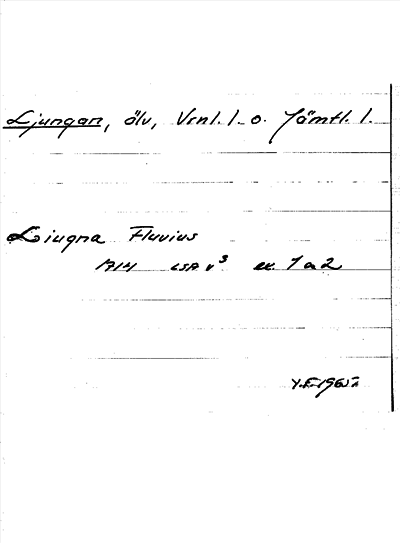 Ljungan, älv, Vrnl. l. o. Jämtl. l.
Liugna Fluvius
1714 LSA V³ ex. 1 a 2